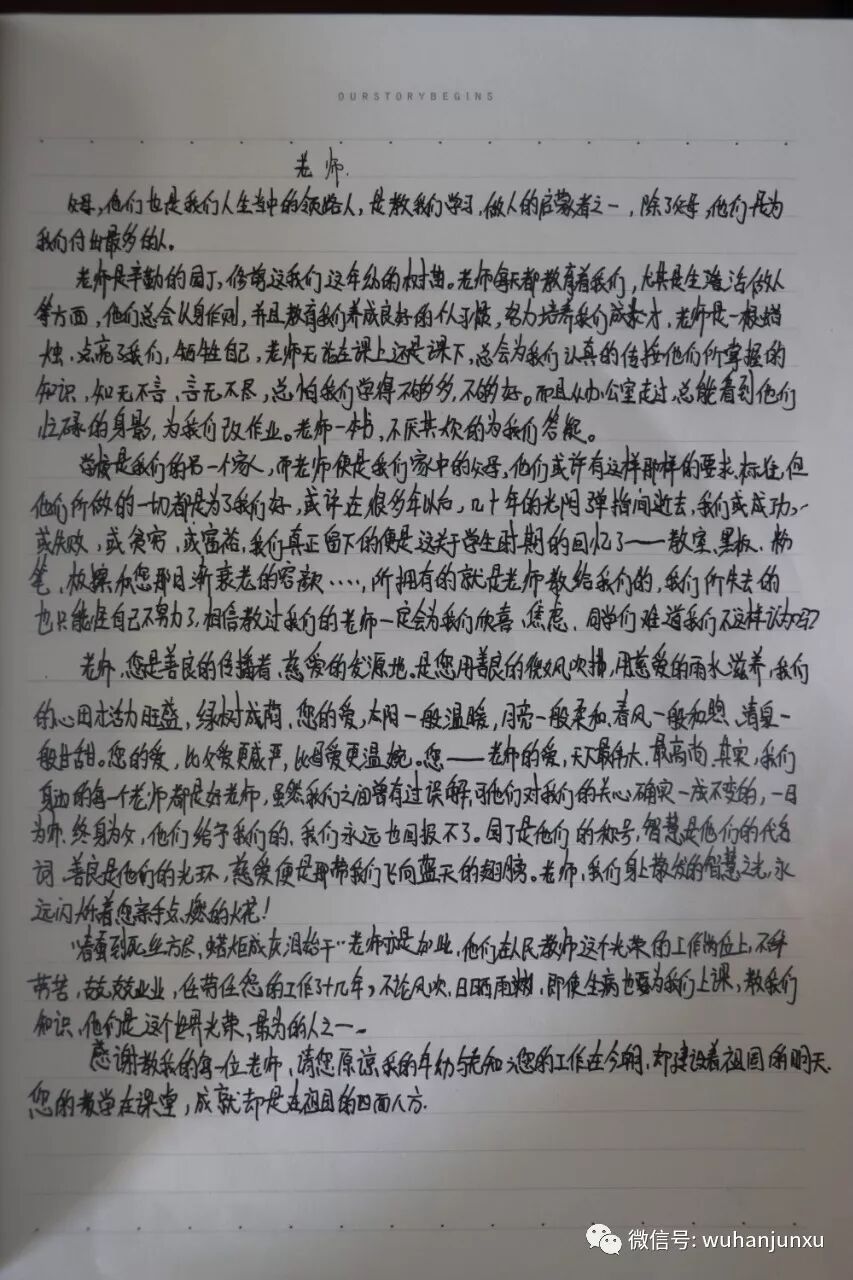 OURSTORYBEGINS
老师.
父母,他们也是我们人生当中的领路人,是教我们学习,做人的启蒙者之一,除了父母,他们是为
我们付出最多的人。
老师是辛勤的园丁,修剪这我们这年幼的树苗。老师每天都教育着我们,尤其是生活做人
等方面,他们总会以身作则,并且教育我们养成良好的习惯,努力培养我们成才,老师是一根蜡
烛,点亮了我们,牺牲自己,老师无论在课上还是课下,总会为我们认真的传授他们所掌握的
知识,知无不言、言无不尽,总怕我们学得不够多,不够好。而且从办公室走过,总能看到他们
忙碌的身影,为我们改作业。老师一本书,不厌其烦的为我们答疑。
学校是我们的另一个家人,而老师便是我们家中的父母,他们或许有这样那样的要求.标准,但
他们所做的一切都是为了我们好,或许在很多年以后,几十年的光阴弹指间逝去,我们或成功,
或失败,或贫穷,或富裕,我们真正留下的便是这关于学生时期的回忆了——教室、黑板、粉
笔、板擦和您那日渐衰老的容颜……,所拥有的就是老师教给我们的,我们所失去的
也只能怪自己不努力了,相信教过我们的老师一定会为我们欣喜、焦虑、同学们难道我们不这样认为吗?
老师,您是善良的传播者、慈爱的发源地。是您用善良的微风吹拂,用慈爱的雨水滋养,我们
的心田才活力旺盛,绿树成荫、您的爱,太阳一般温暖,月亮一般柔和、春风一般和煦、清泉一
般甘甜。您的爱,比父爱更威严,比母爱更温婉。您——老师的爱,天下最伟大、最高尚.其实,我们
身边的每一个老师都是好老师,虽然我们之间曾有过误解,可他们对我们的关心确实一成不变的,一日
为师.终身为父,他们给予我们的、我们永远也回报不了。园丁是他们的称号,智慧是他们的代名
词、善良是他们的光环,慈爱便是那带我们飞向蓝天的翅膀。老师,我们身上散发的智慧之光,永
远闪烁着您亲手点燃的火花!
"春蚕到死丝方尽、蜡炬成灰泪始干"老师亦是如此,他们在人民教师这个光荣的工作岗位上,不辞
劳苦,兢兢业业,任劳任怨的工作了十几年,不论风吹、日晒雨淋、即使生病也要为我们上课,教我们
知识、他们是这个世界光荣、最为的人之一.
感谢教我的每一位老师、请您原谅我的年幼与无知,您的工作在今朝、却建设着祖国的明天.
您的教学在课堂,成就却是在祖国的四面八方.
微信号: wuhanjunxu